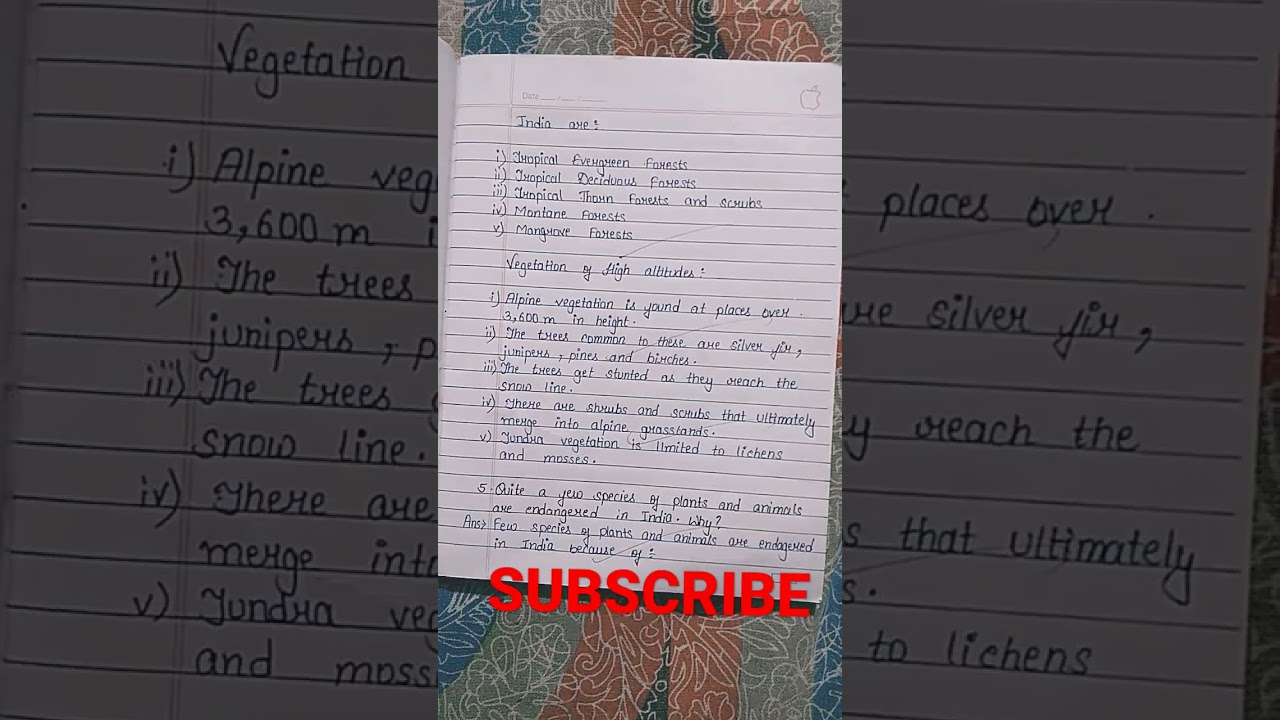 Date
India are:
i) Tropical Evergreen Forests
ii) Tropical Deciduous Forests
iii) Tropical Thorn Forests and scrubs
iv) Montane Forests
v) Mangrove Forests
Vegetation of High altitudes:
i) Alpine vegetation is found at places over.
3,600m in height.
ii) The trees common to these are silver fir,
junipers, pines and birches.
iii) The trees get stunted as they reach the
snow line.
iv) There are shrubs and scrubs that ultimately
merge into alpine grasslands.
v) Tundra vegetation is limited to lichens
and mosses.
5. Quite a few species of plants and animals
are endangered in India. Why?
Ans> Few species of plants and animals are endagered
in India because of:
SUBSCRIBE